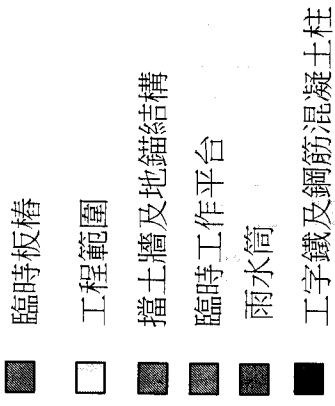 臨時板樁
工程範圍
擋土牆及地錨結構
臨時工作平台
雨水筒
工字鐵及鋼筋混凝土柱